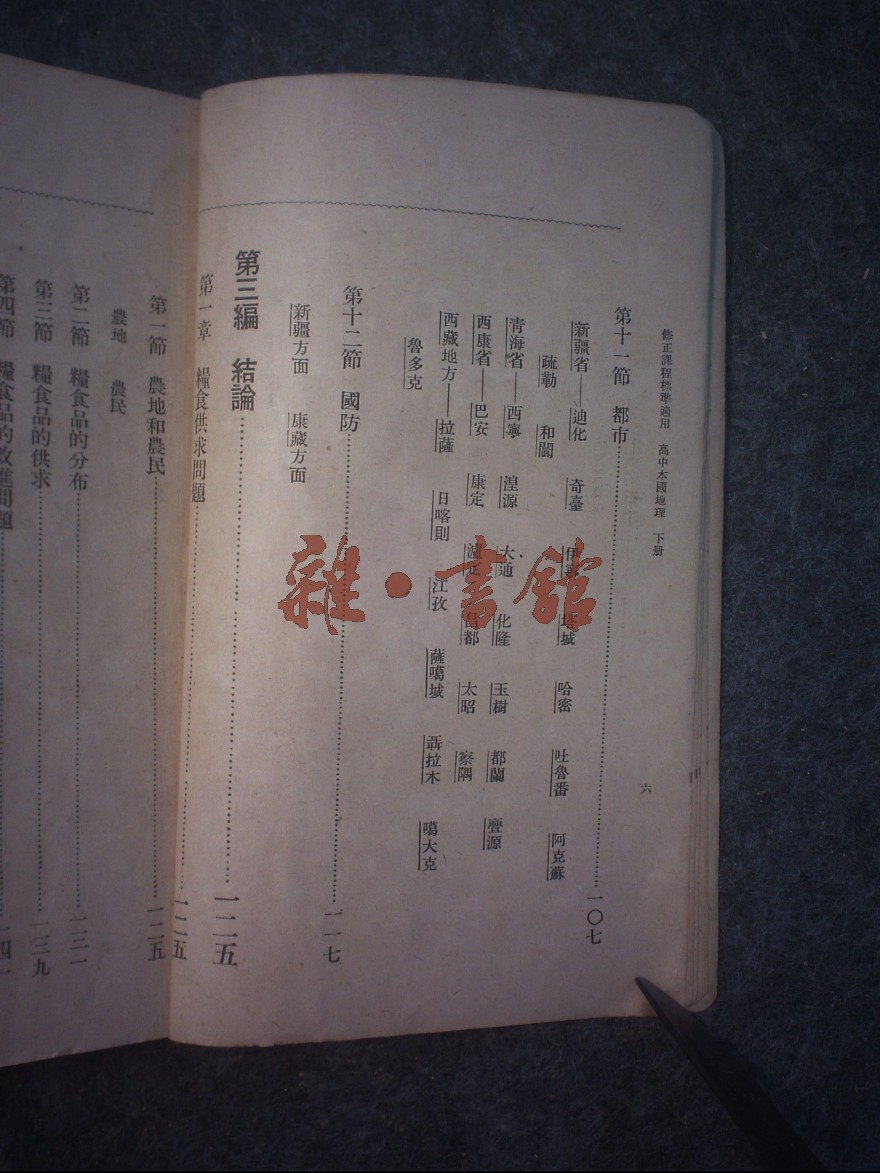 修正課程標準適用　高中本國地理　下册
六
第十一節　都市……一〇七
新疆省——迪化　奇臺　伊寧　塔城　哈密　吐魯番　阿克蘇
疏勒　和闐
青海省——西寧　湟源　大通　化隆　玉樹　都蘭　亹源
西康省——巴安　康定　瀘定　昌都　太昭　察隅
西藏地方——拉薩　日喀則　江孜　薩噶城　聶拉木　噶大克
魯多克
第十二節　國防……一一七
新疆方面　康藏方面
第三編　結論……一二五
第一章　糧食供求問題……一二五
第一節　農地和農民……一二五
農地　農民
第二節　糧食品的分布……一三一
第三節　糧食品的供求……一三九
第四節　糧食品的改進問題
雜·書館